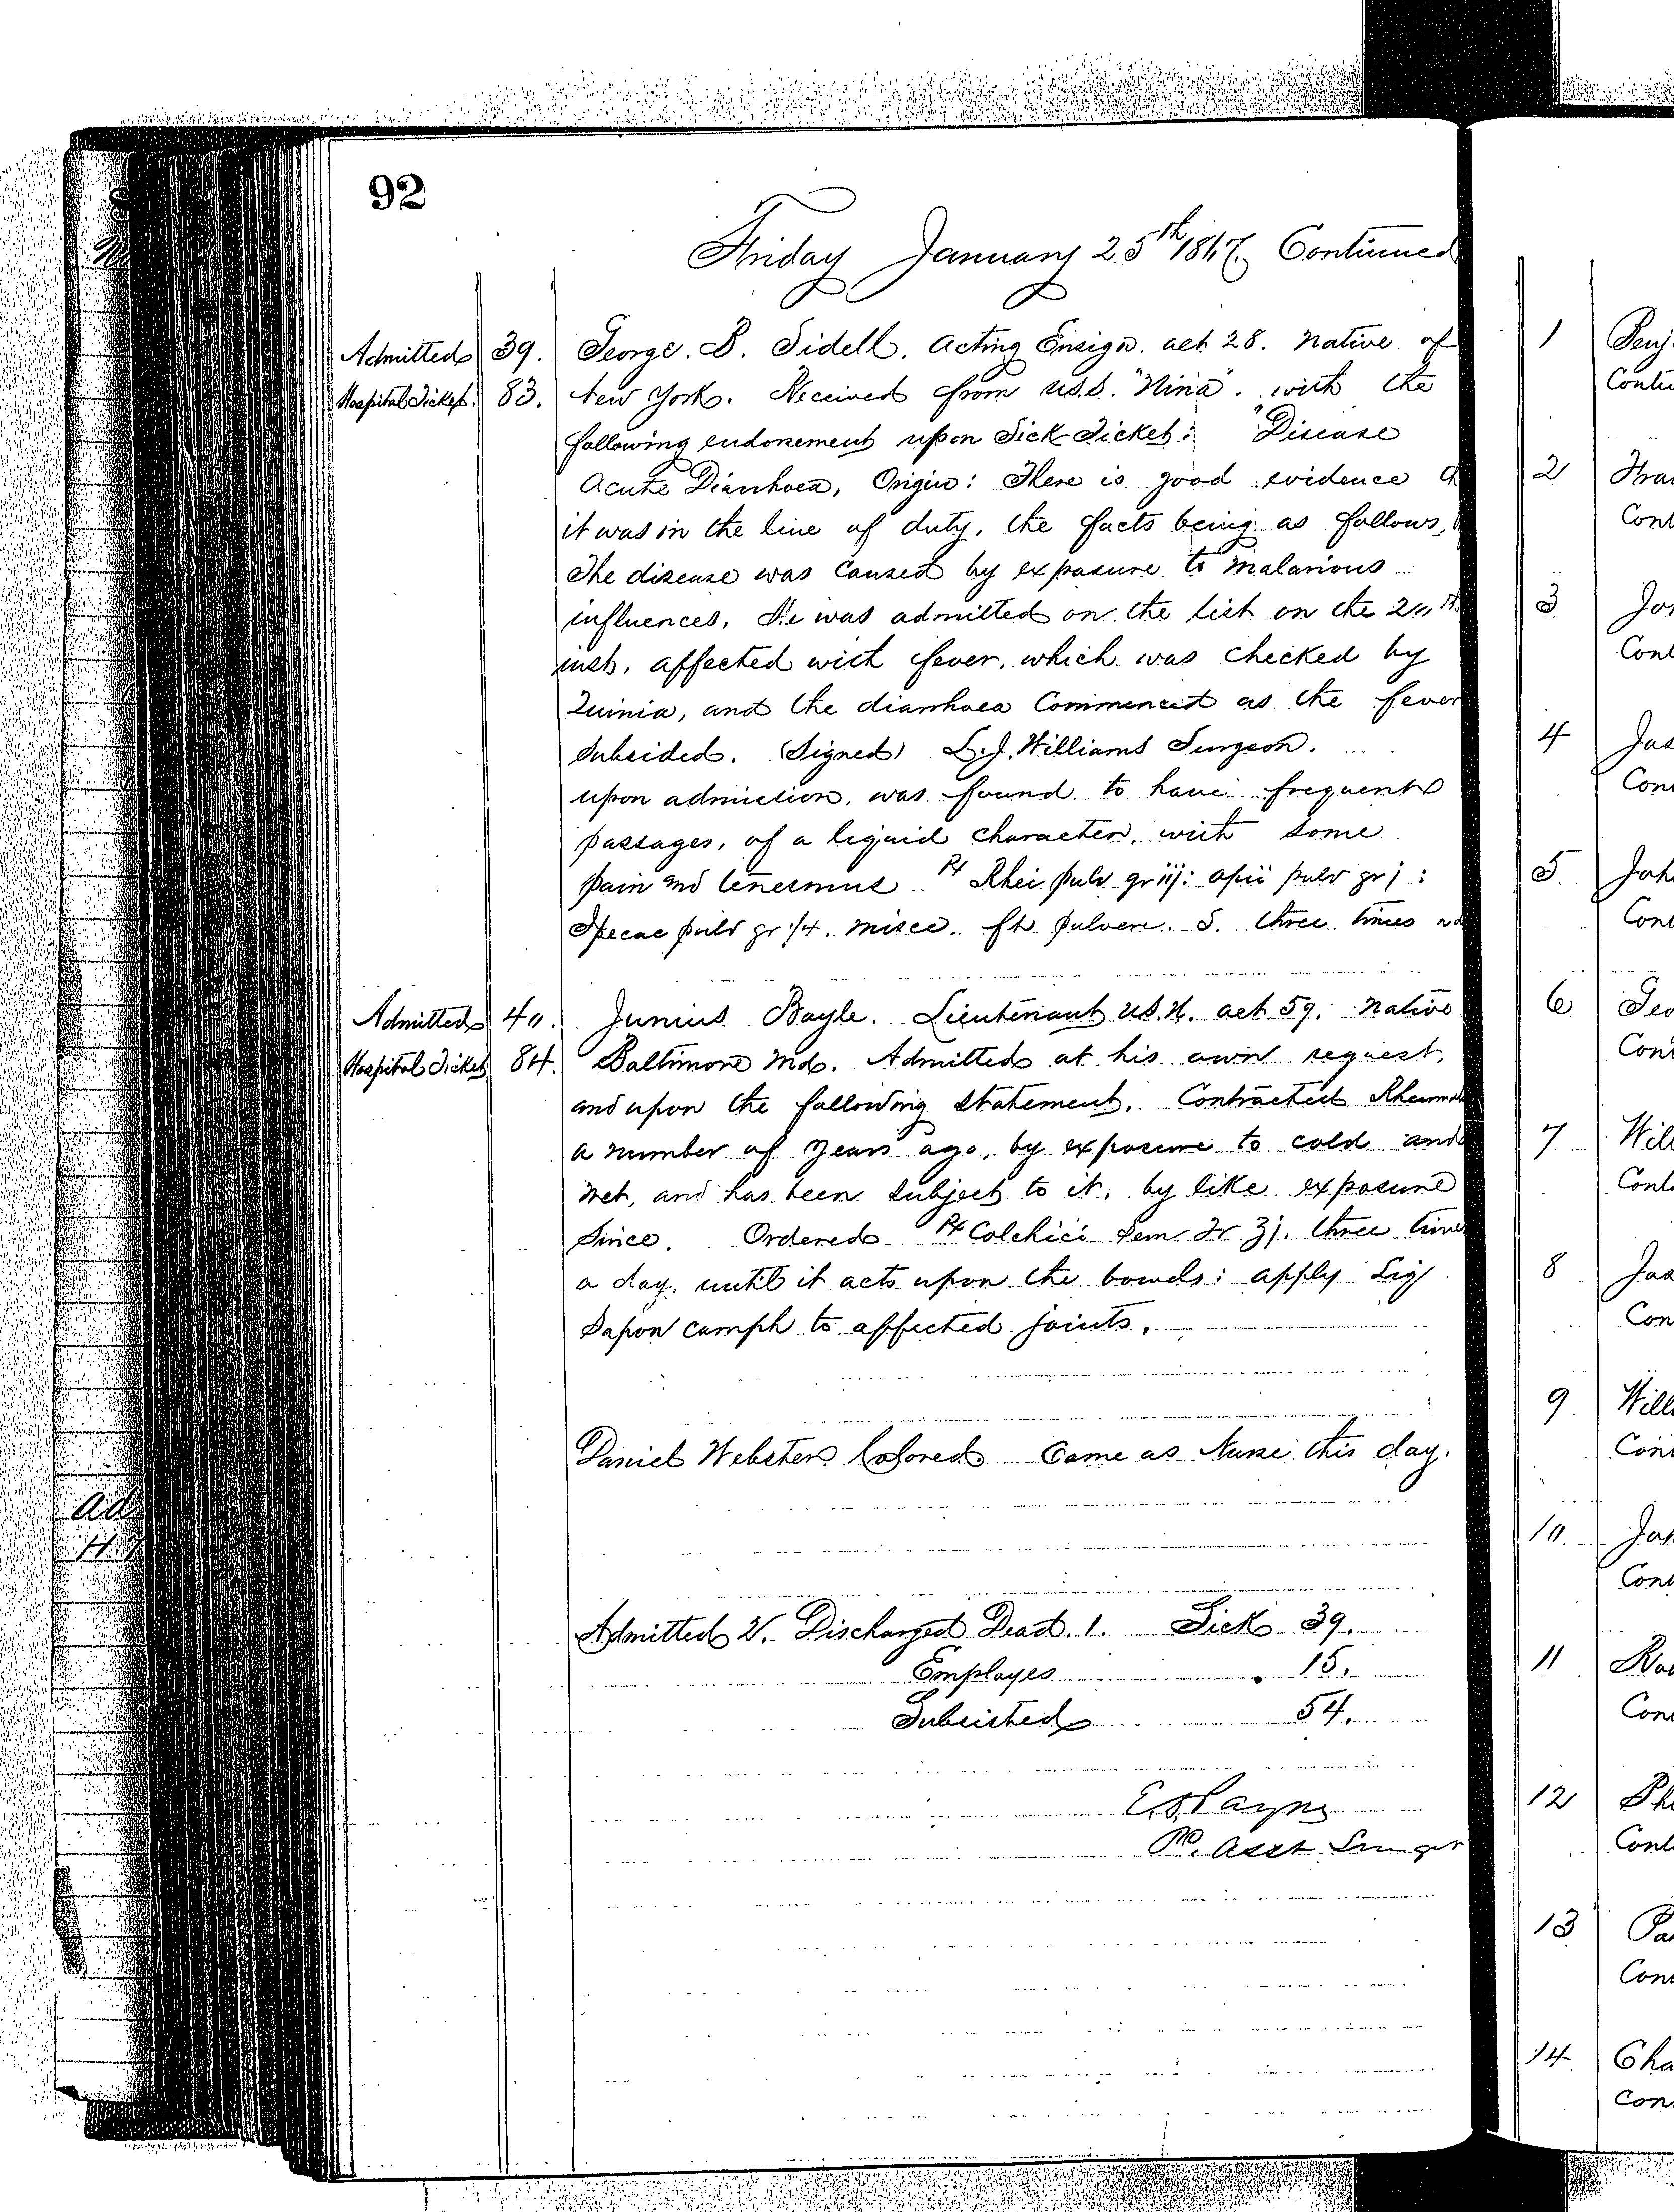 92
Friday January 25th 1867. Continued
Admitted 39. George. B. Sidell. Acting Ensign. aet 28. Native of
Hospital Ticket. 83. New York. Received from U.S.S. "Nina". with the
following endorsement upon Sick Ticket: "Disease
Acute Diarrhoea, Origin: There is good evidence
it was in the line of duty, the facts being as follows,
The disease was caused by exposure to malarious
influences. He was admitted on the list on the 20th
inst. affected with fever, which was checked by
Quinia, and the diarrhoea commenced as the fever
subsided. (Signed) L.J. Williams Surgeon.
upon admission, was found to have frequent
passages, of a liquid character, with some
pain and tenesmus ℞ Rhei pulv griij: opii pulv grj:
Ipecac pulv gr 1/4. misce. ft pulvere. S. three times
Admitted 40. Junius Boyle. Lieutenant U.S.N. aet 59. native
Hospital Ticket 84. Baltimore Md. Admitted at his own request,
and upon the following statement. Contracted
a number of years ago, by exposure to cold and
wet, and has been subject to it, by like exposure
since. Ordered ℞ Colchici Sem Tr ʒj. three time
a day. until it acts upon the bowels: apply Liq
Sapon camph to affected joints.
Daniel Webster Colored Came as Nurse this day.
Admitted 2. Discharged Dead. 1. Sick 39.
Employes 15.
Subsisted 54.
P. Asst Surgn
1
Contu
2
Cont
3
Cont
4 Jas
Con
5 Joh
Con
6 Geo
Con
7 Will
Cont
8 Jas
Con
9 Will
Con
10
Con
11
Con
12
Cont
13
Con
14 Cha
Con